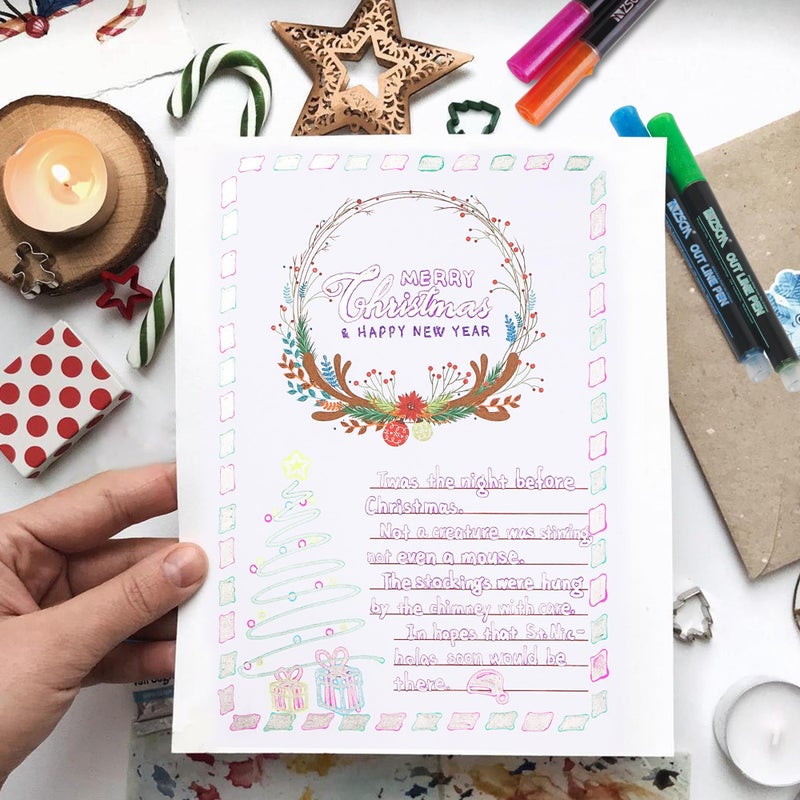 INZSCM
MERRY
Christmas
& HAPPY NEW YEAR
INZSCM OUT LINE PEN
INZSCM OUT LINE PEN
Twas the night before
Christmas.
Not a creature was stirring
not even a mouse.
The stockings were hung
by the chimney with care.
In hopes that St. Nic-
holas soon would be
there.